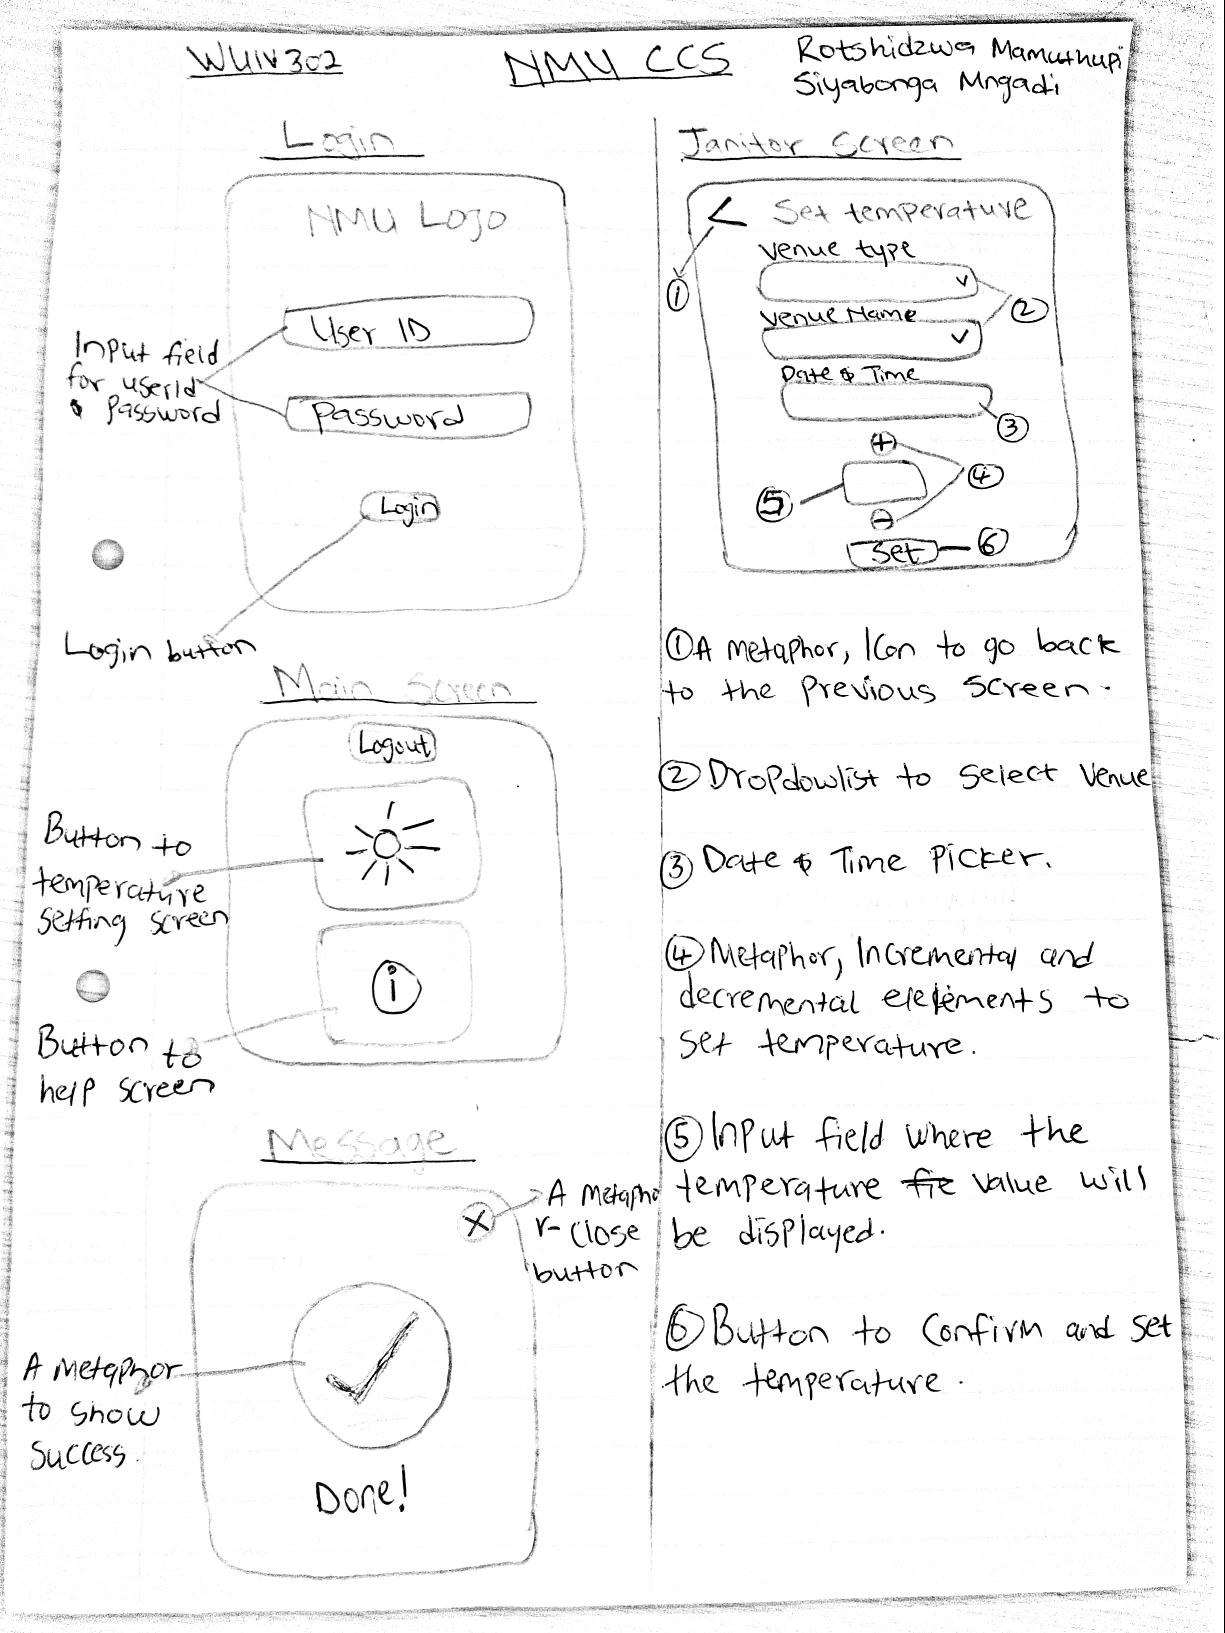 WUIV302
NMU CCS
Rotshidzwa Mamuthupi
Siyabonga Mngadi
Login
NMU Logo
User ID
Password
Input field
for userId
& Password
Login
Login button
Main Screen
Logout
Button to
temperature
setting screen
i
Button to
help screen
Message
X
A metapho
r-close
button
A metaphor
to show
success.
Done!
Janitor Screen
< Set temperature
Venue type
Venue Name
Date & Time
+
-
Set
1
2
3
4
5
6
① A metaphor, Icon to go back
to the previous screen.
② Dropdowlist to select venue
③ Date & Time Picker.
④ Metaphor, Incremental and
decremental elements to
set temperature.
⑤ Input field where the
temperature value will
be displayed.
⑥ Button to confirm and set
the temperature.